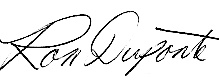 Ron Duponte